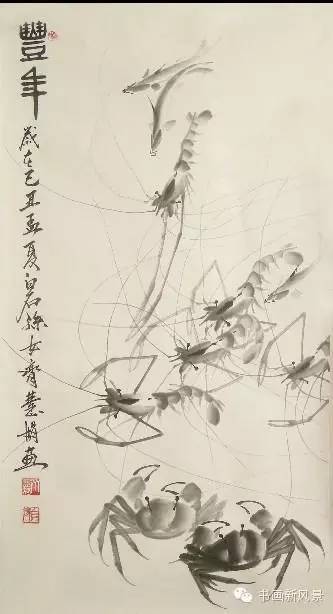 豐年
歲在己丑孟夏白石孫女齊慧娟畫
书画新风景